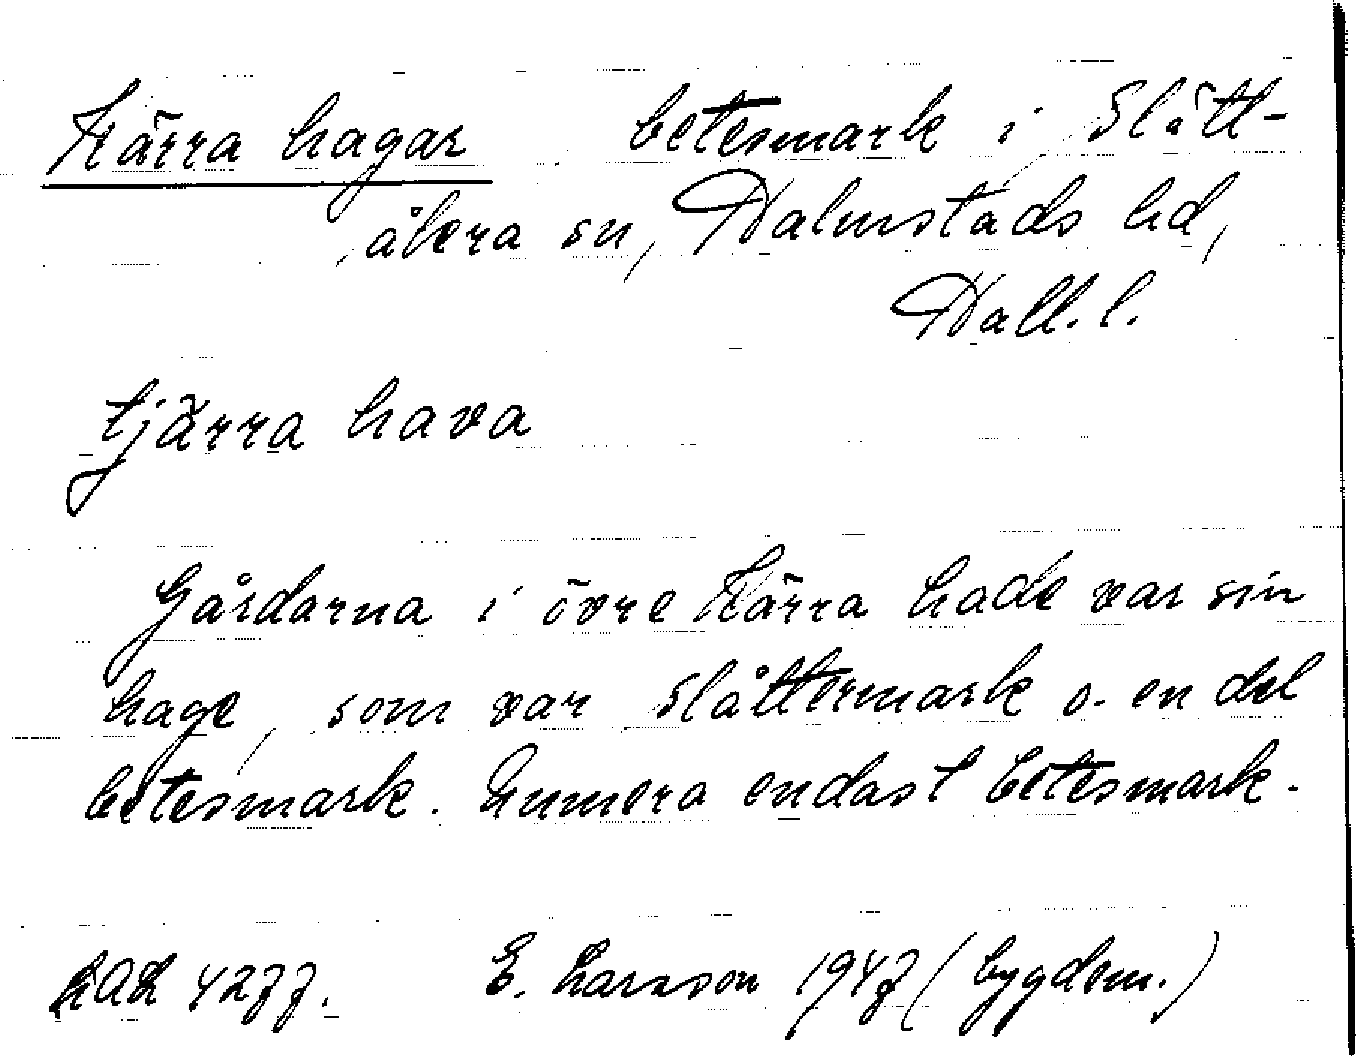 Kärra hagar betesmark i Slätt-
åkra sn, Halmstads hd,
Hall. l.
tjärra hava
Gårdarna i övre Kärra hade var sin
hage, som var slåttermark o. en del
betesmark. Numera endast betesmark.
4277. E. Larsson 1947 (bygdem.)